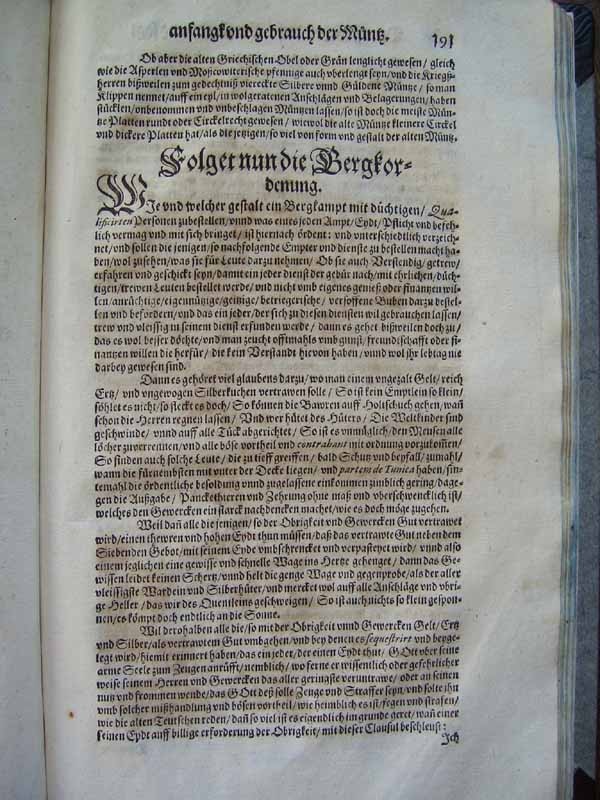 anfangk vnd gebrauch der Müntz. 191
Ob aber die alten Griechischen Obel oder Grän lenglicht gewesen / gleich
wie die Asperlen vnd Moscowiterische pfennige auch vberlengt seyn / vnd die Kriegß-
herren bißweilen zum gedechtniß viereckte Silbere vnnd Güldene Müntze / so man
Klippen nennet / auff ein eyl / in wolgeratenen Anschlägen vnd Belagerungen / haben
stücklen / vnbenommen vnd vnbeschlagen Müntzen lassen / so ist doch die meiste Mün-
tze Platten rundt oder Circkelrecht gewesen / wiewol die alte Müntze kleinere Circkel
vnd dickere Platten hat / als die jetzigen / so viel von form vnd gestalt der alten Müntz.
Folget nun die Bergkor-
denung.
WJe vnd welcher gestalt ein Bergkampt mit düchtigen / Qua-
lificirten Personen zubestellen / vnnd was eines jeden Ampt / Eydt / Pflicht vnd befeh-
lich vermag vnd mit sich bringet / ist hiernach ördent: vnd vnterschiedtlich verzeich-
net / vnd sollen die jenigen / so nachfolgende Empter vnd dienste zu bestellen macht ha-
ben / wol zusehen / was sie für Leute darzu nehmen / Ob sie auch Verstendig / getrew /
erfahren vnd geschickt seyn / damit ein jeder dienst der gebür nach / mit ehrlichen / düch-
tigen / trewen Leuten bestellet werde / vnd nicht vmb eigenes genieß oder finantzen wil-
len / anrüchtige / eigennützige / geitzige / betriegerische / versoffene Buben darzu bestel-
len vnd befordern / vnd das ein jeder / der sich zu diesen diensten wil gebrauchen lassen /
trew vnd vleissig in seinem dienst erfunden werde / dann es gehet bißweilen doch zu /
das es wol besser döchte / vnd man zeucht offtmahls vmb gunst / freundschafft oder fi-
nantzen willen die herfür / die kein Verstandt hievon haben / vnnd wol jhr lebtag nie
darbey gewesen sind.
Dann es gehöret viel glaubens darzu / wo man einem vngezalt Gelt / reich
Ertz / vnd vngewogen Silberkuchen vertrawen solle / So ist kein Emptlein so klein /
söhlet es nicht / so steckt es doch / So können die Bawren auff Holtzschuch gehen / wañ
schon die Herren regnen lassen / Vnd wer hütet des Hüters / Die Weltkinder sind
geschwinde / vnnd auff alle Tück abgerichtet / So ist es vnmüglich / den Mensen alle
löcher zuverrennen / vnd alle böse vortheil vnd contrabant mit ordnung vorzukom̃en /
So finden auch solche Leute / die zu tieff greiffen / bald Schutz vnd beyfall / zumahl /
wann die fürnembsten mit vnter der Decke liegen / vnd partem de Tunica haben / sin-
temahl die ördentliche besoldung vnnd zugelassene einkommen zimblich gering / dage-
gen die Außgabe / Panckethieren vnd Zehrung ohne maß vnd vberschwencklich ist /
welches den Gewercken ein starck nachdencken machet / wie es doch möge zugehen.
Weil dañ alle die jenigen / so der Obrigkeit vnd Gewercken Gut vertrawet
wird / einen thewren vnd hohen Eydt thun müssen / daß das vertrawte Gut neben dem
Siebenden Gebot / mit seinem Eyde vmbschrencket vnd verpasteyet wird / vnnd also
einem jeglichen eine gewisse vnd schnelle Wage ins Hertze gehenget / dann das Ge-
wissen leidet keinen Schertz / vnnd helt die genge Wage vnd gegenprobe / als der aller
vleissigste Wardein vnd Silberhüter / vnd mercket wol auff alle Anschläge vnd vbri-
ge Heller / das wir des Quentleins geschweigen / So ist auch nichts so klein gespon-
nen / es kömpt doch endtlich an die Sonne.
Wil derohalben alle die / so mit der Obrigkeit vnnd Gewercken Gelt / Ertz
vnd Silber / als vertrawtem Gut vmbgehen / vnd bey denen es sequestrirt vnd beyge-
legt wird / hiemit erinnert haben / das ein jeder / der einen Eydt thut / GOtt vber seine
arme Seele zum Zeugen anrüfft / nemblich / wo ferne er wissentlich oder gefehrlicher
weise seinem Herren vnd Gewercken das aller geringste veruntrawe / oder an seinen
nutz vnd frommen wende / das GOtt deß solle Zeuge vnd Straffer seyn / vnd solle jhn
vmb solcher mißhandlung vnd bösen vortheil / wie heimblich es ist / fegen vnd strafen /
wie die alten Teutschen reden / dañ so viel ist es eigendtlich im grunde geret / wañ einer
seinen Eydt auff billige erforderung der Obrigkeit / mit dieser Clausul beschleust:
Jch